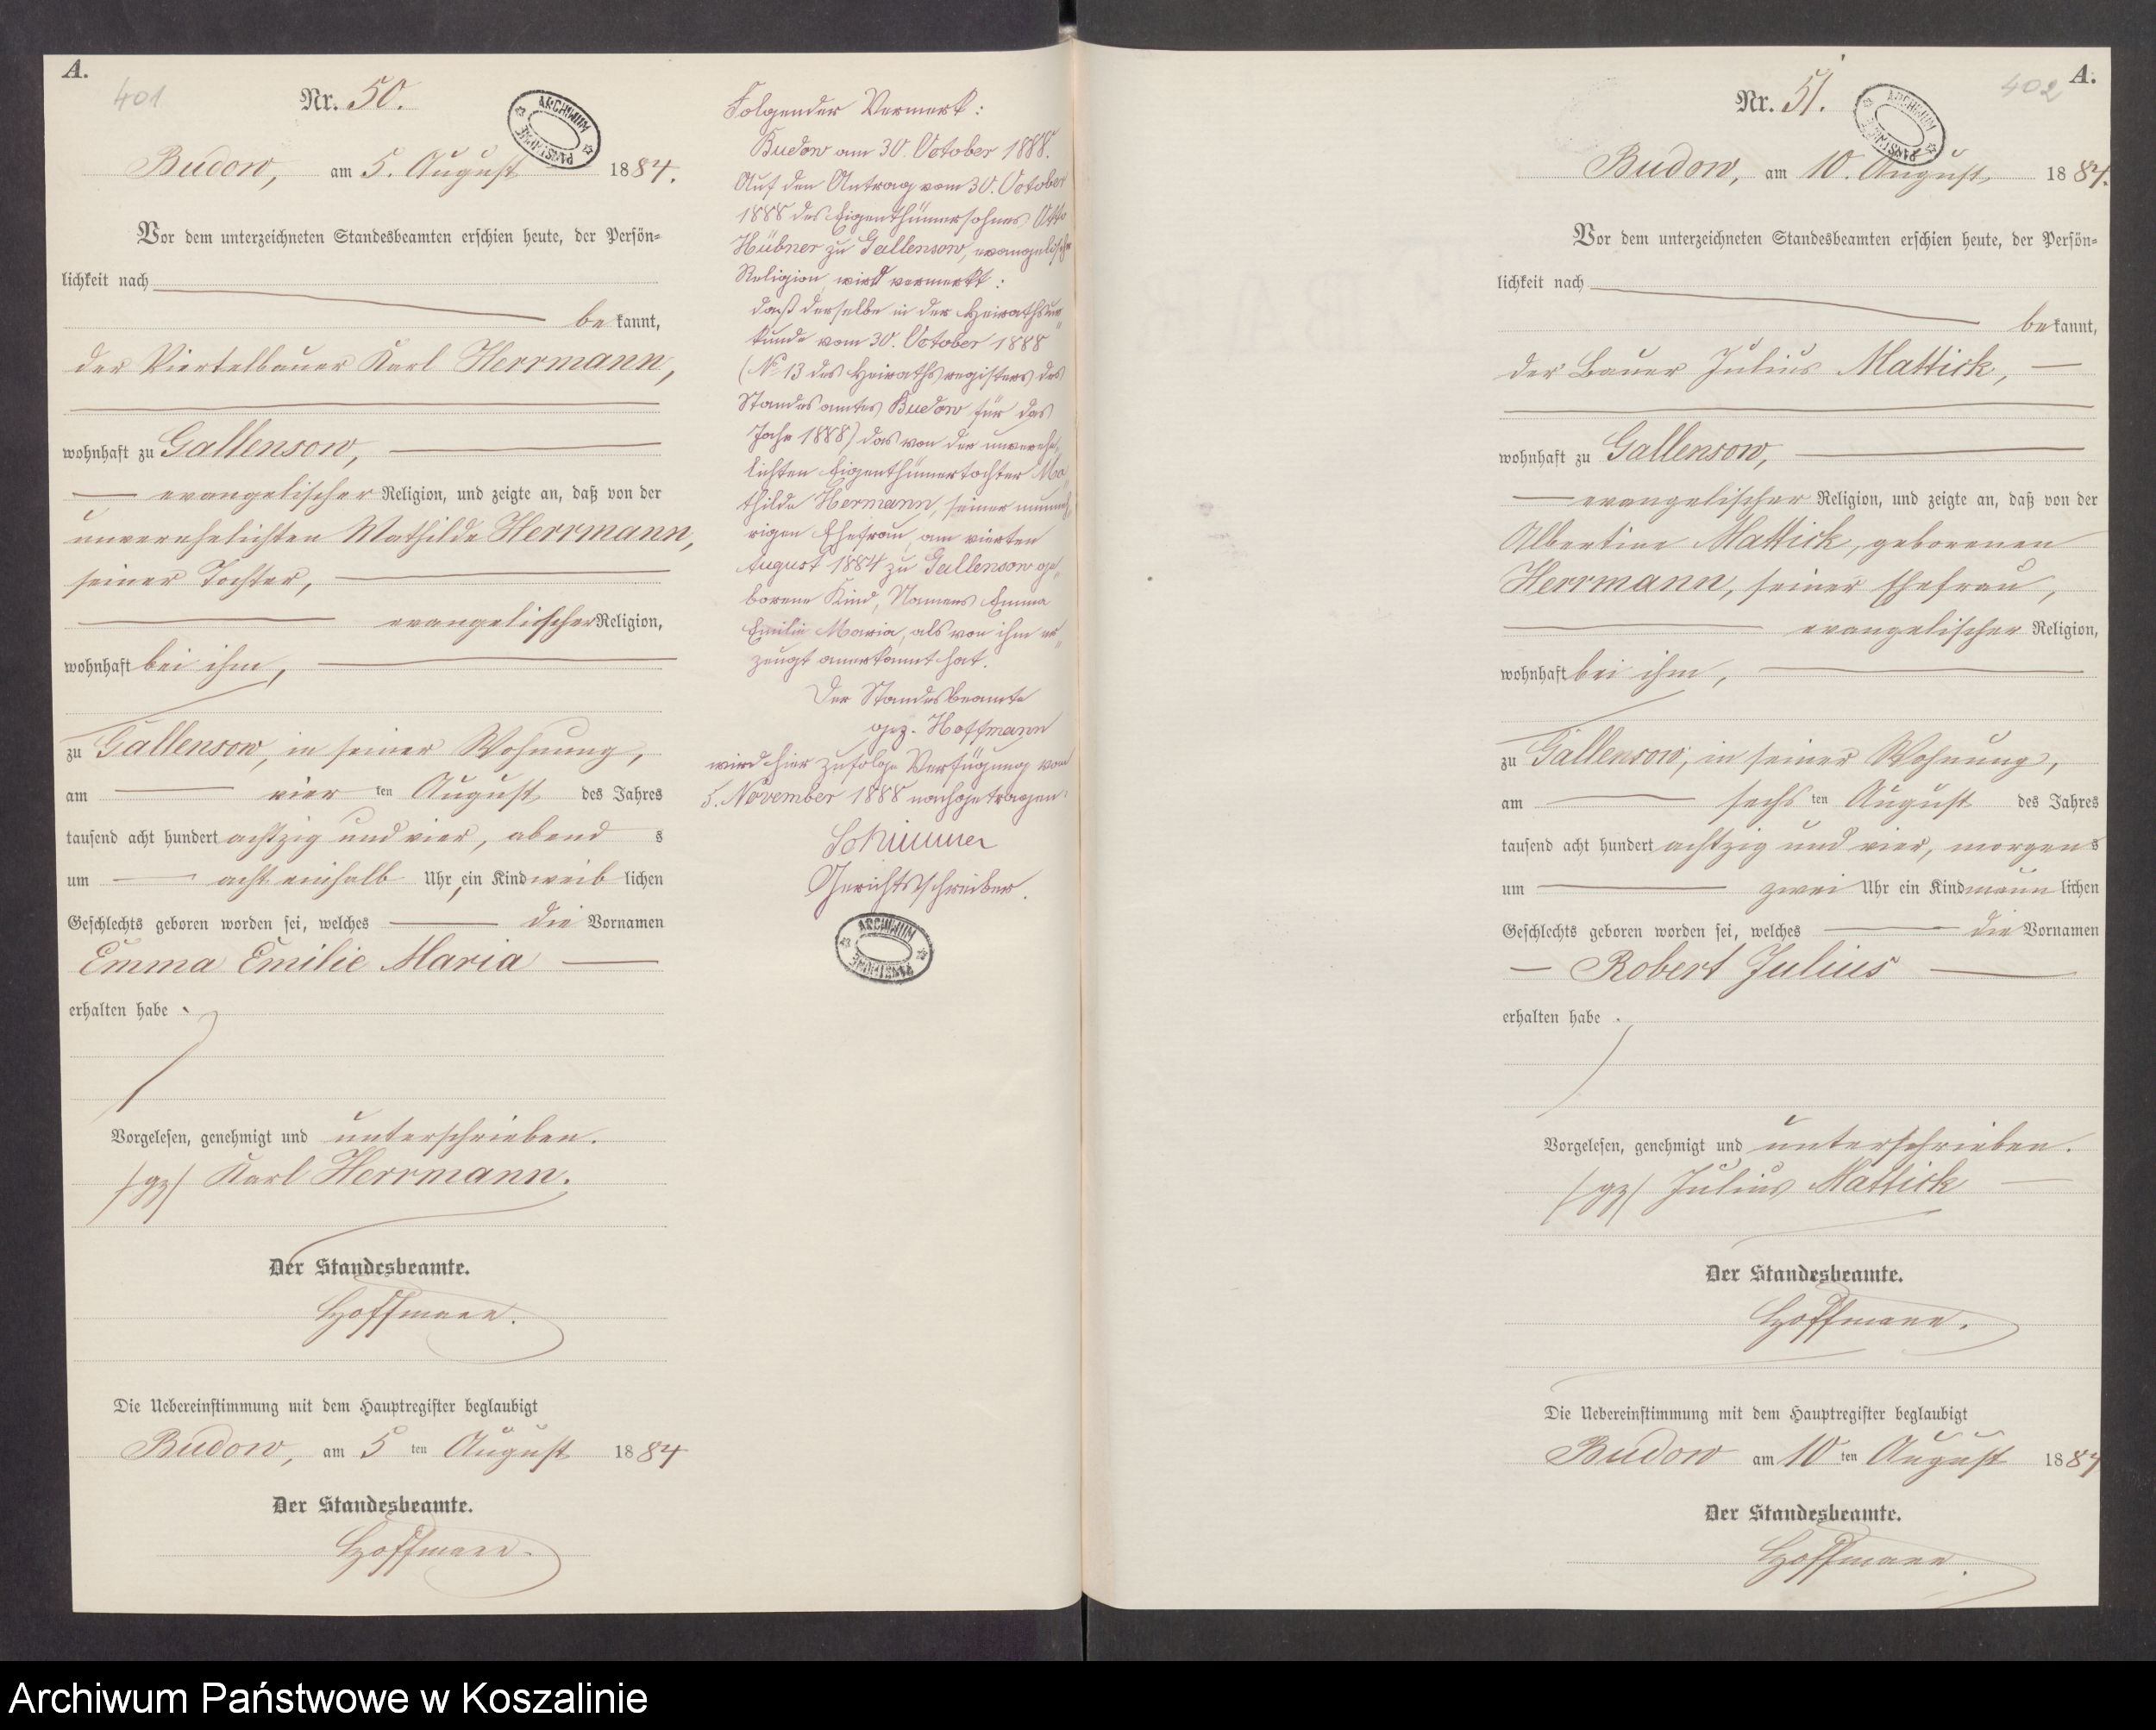 A.
401
Nr. 50.
ARCHIWUM PAŃSTWOWE
Budow, am 5. August 1884.
Vor dem unterzeichneten Standesbeamten erschien heute, der Persön-
lichkeit nach
bekannt,
der Viertelbauer Karl Herrmann,
wohnhaft zu Gallensow,
evangelischer Religion, und zeigte an, daß von der
unverehelichten Mathilde Herrmann,
seiner Tochter,
evangelischer Religion,
wohnhaft bei ihm,
zu Gallensow, in seiner Wohnung,
am vier ten August des Jahres
tausend acht hundert achtzig und vier, abend s
um acht einhalb Uhr, ein Kind weib lichen
Geschlechts geboren worden sei, welches die Vornamen
Emma Emilie Maria
erhalten habe.
Vorgelesen, genehmigt und unterschrieben.
/gz/ Karl Herrmann.
Der Standesbeamte.
Hoffmann.
Die Uebereinstimmung mit dem Hauptregister beglaubigt
Budow, am 5 ten August 1884
Der Standesbeamte.
Hoffmann.
Folgender Vermerk:
Budow am 30. October 1888.
Auf den Antrag vom 30. October
1888 des Eigenthümersohnes Otto
Hübner zu Gallensow, evangelischer
Religion, wird vermerkt:
daß derselbe in der Heirathsur-
kunde vom 30. October 1888
(No 13 des Heirathsregisters des
Standesamtes Budow für das
Jahr 1888) das von der unverehe-
lichten Eigenthümertochter Ma-
thilde Hermann, seiner nunmeh-
rigen Ehefrau, am vierten
August 1884 zu Gallensow ge-
borene Kind, Namens Emma
Emilie Maria, als von ihm er-
zeugt anerkannt hat.
Der Standesbeamte
gez. Hoffmann
wird hier zufolge Verfügung vom
5. November 1888 nachgetragen.
Gerichtsschreiber.
ARCHIWUM PAŃSTWOWE
A.
402
Nr. 51.
ARCHIWUM PAŃSTWOWE
Budow, am 10. August 1884.
Vor dem unterzeichneten Standesbeamten erschien heute, der Persön-
lichkeit nach
bekannt,
der Bauer Julius Mattick,
wohnhaft zu Gallensow,
evangelischer Religion, und zeigte an, daß von der
Albertine Mattick, geborenen
Herrmann, seiner Ehefrau,
evangelischer Religion,
wohnhaft bei ihm,
zu Gallensow, in seiner Wohnung,
am sechs ten August des Jahres
tausend acht hundert achtzig und vier, morgens
um zwei Uhr ein Kind männ lichen
Geschlechts geboren worden sei, welches die Vornamen
Robert Julius
erhalten habe.
Vorgelesen, genehmigt und unterschrieben.
/gz/ Julius Mattick
Der Standesbeamte.
Hoffmann.
Die Uebereinstimmung mit dem Hauptregister beglaubigt
Budow am 10 ten August 1884
Der Standesbeamte.
Hoffmann.
Archiwum Państwowe w Koszalinie